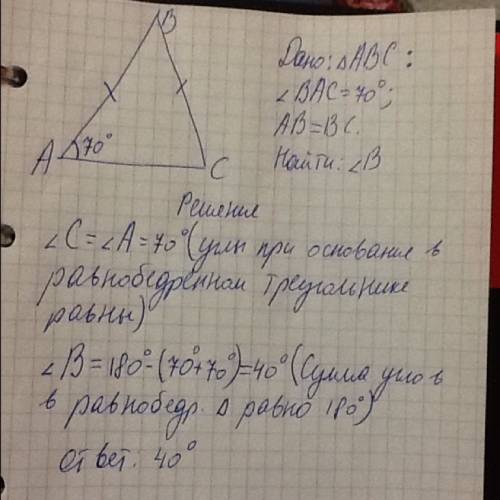 B
A
70°
C
Дано: △ABC:
∠BAC=70°;
AB=BC.
Найти: ∠B
Решение
∠C=∠A=70° (углы при основание в
равнобедренном треугольнике
равны)
∠B=180°-(70°+70°)=40° (Сумма углов
в равнобедр. △ равно 180°)
ответ. 40°